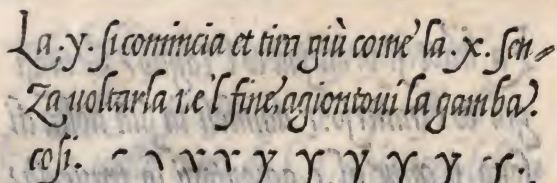 La .y. si comincia et tira giù come la .x. sen=
za uoltarla i. e'l fine, agiontoui la gamba.
cosi. y y y y y y y.